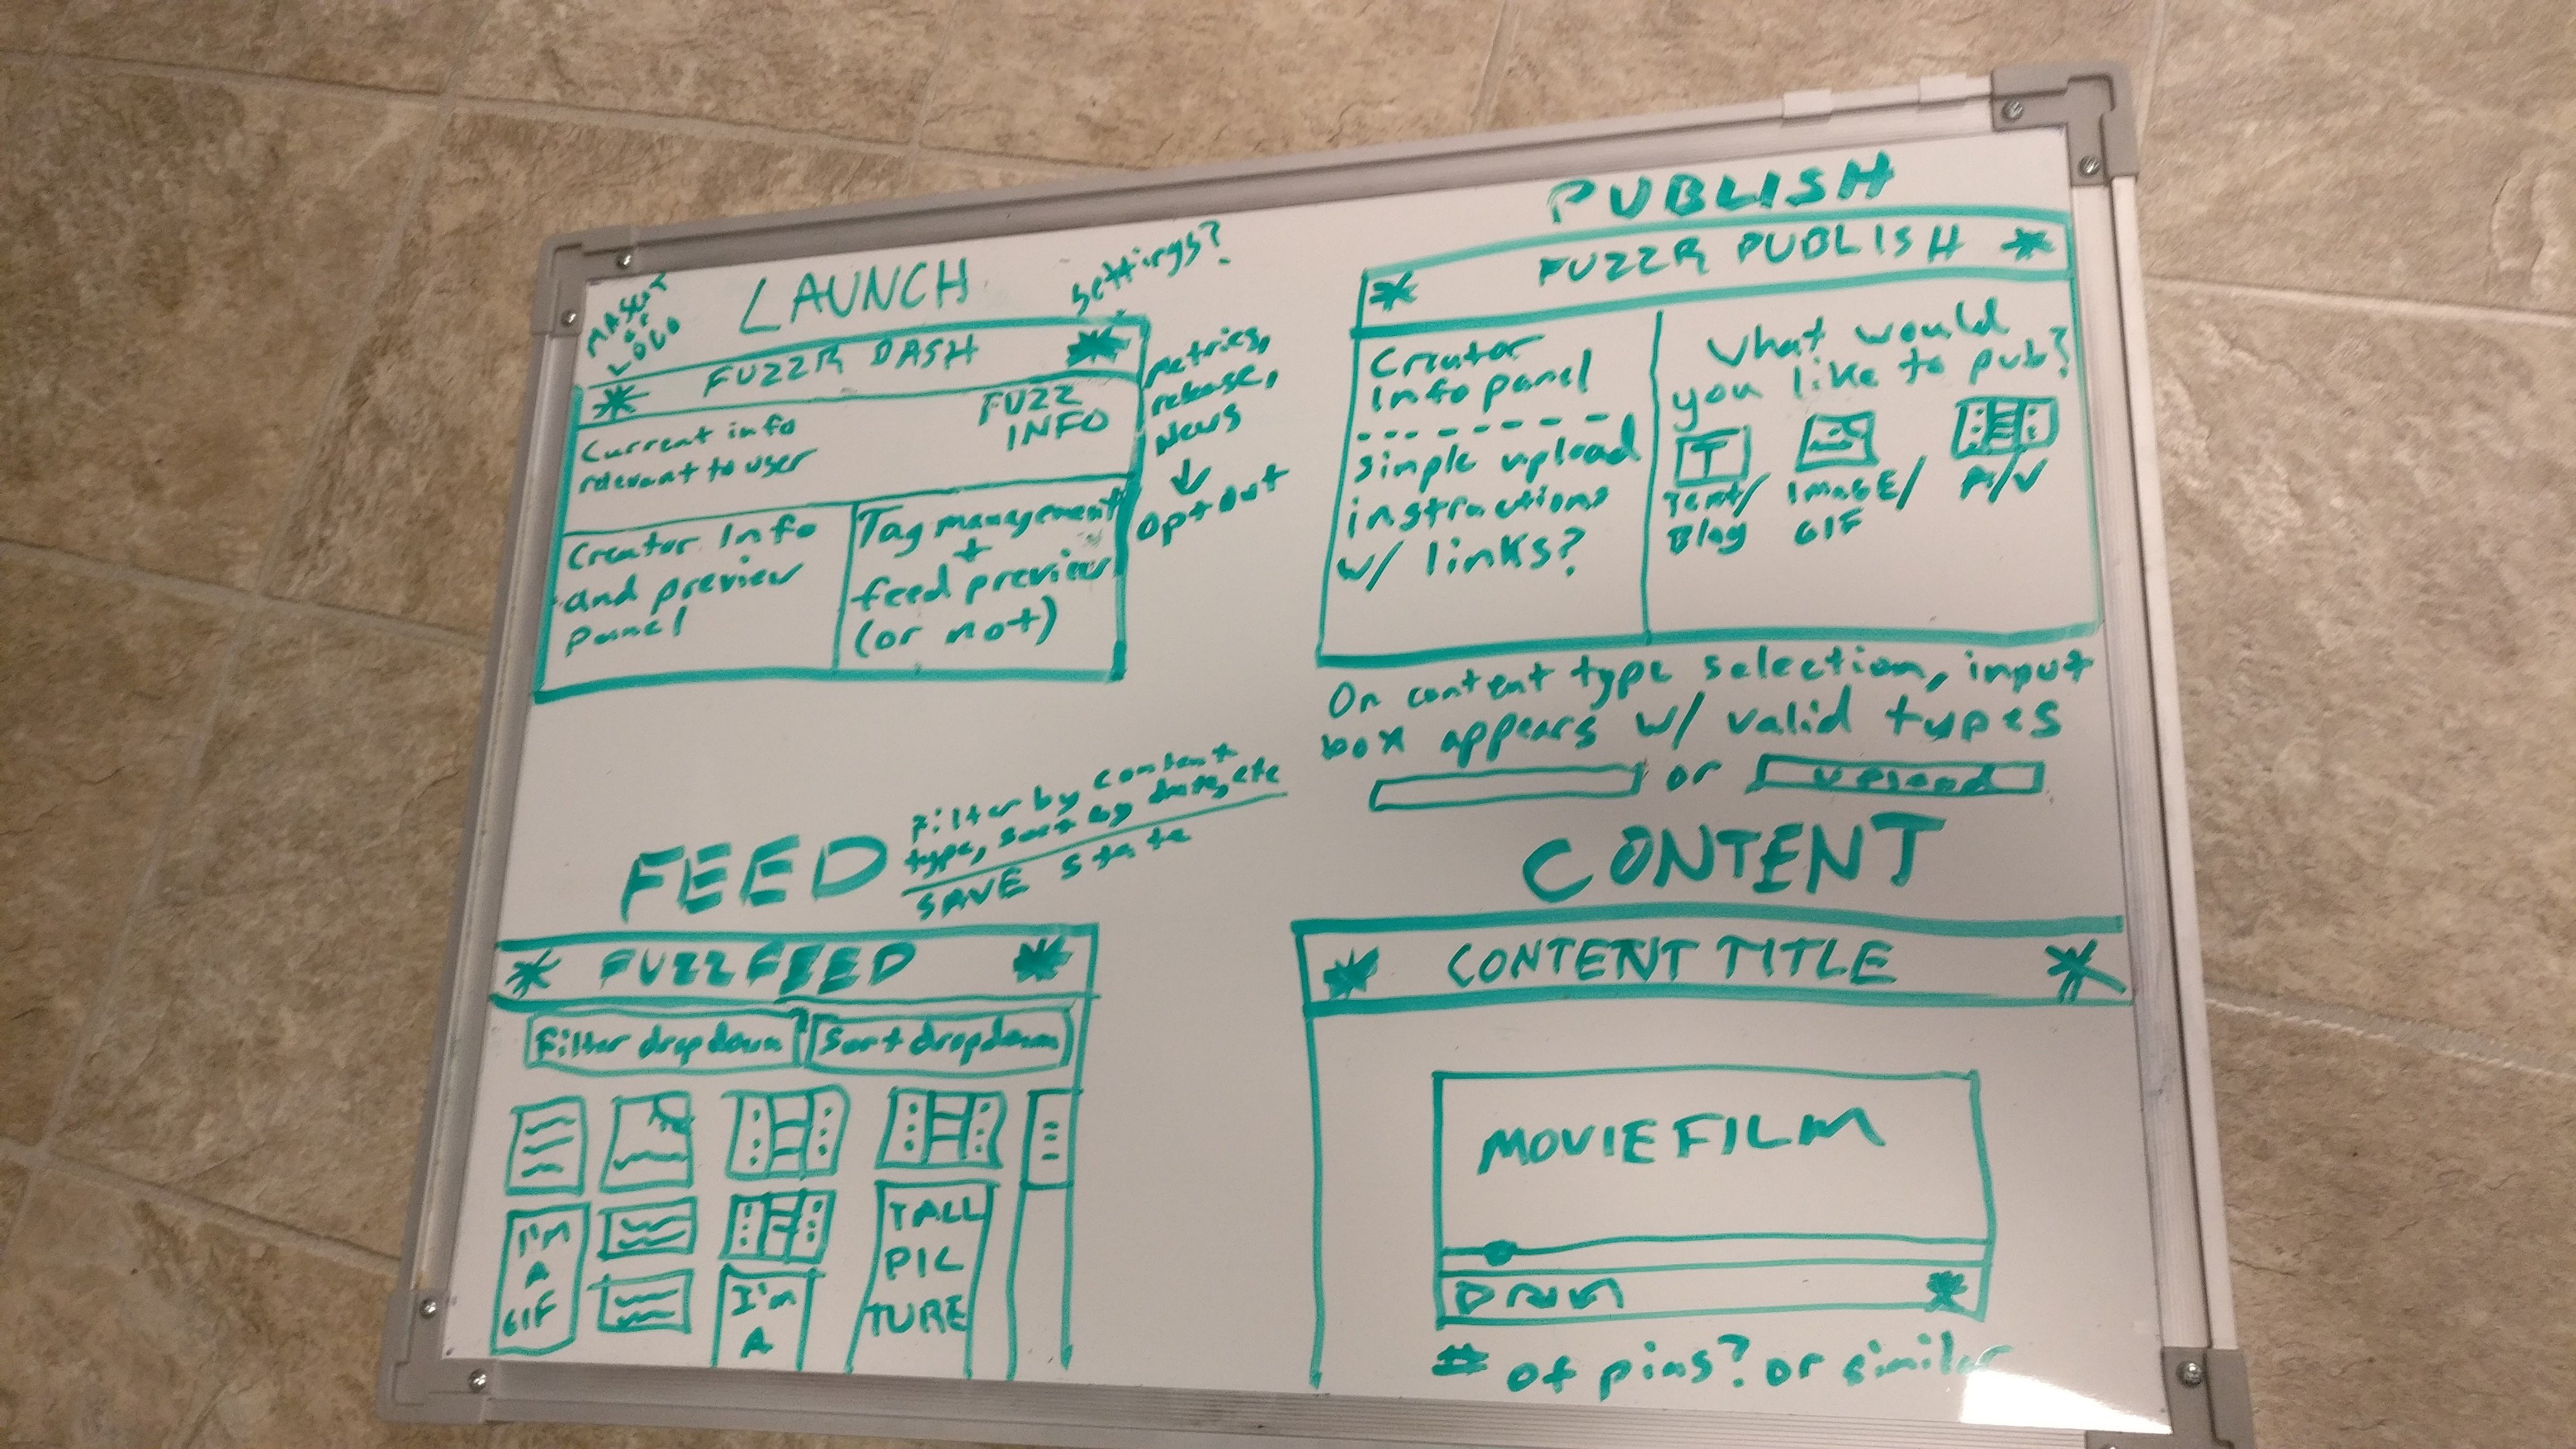 MASCOT
or
LOGO
LAUNCH
Settings?
FUZZR DASH
Current info
relevant to user
FUZZ
INFO
Metrics,
release,
News
↓
opt out
Creator Info
and preview
panel
Tag management
+
feed preview
(or not)
PUBLISH
FUZZR PUBLISH
Creator
Info panel
simple upload
instructions
w/ links?
What would
you like to pub?
T
Text/
Blog
IMAGE/
GIF
On content type selection, input
box appears w/ valid types
or
upload
FEED
Filter by content
type, sort by date, etc
SAVE State
FUZZFEED
Filter dropdown
Sort dropdown
I'M
A
GIF
I'm
A
TALL
PIC
TURE
CONTENT
CONTENT TITLE
MOVIE FILM
# of pins? or similar